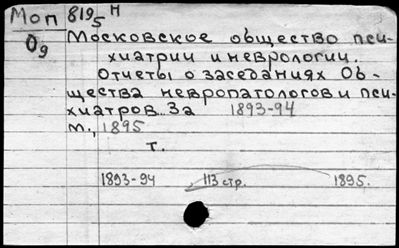 Моп 8195 Н
О9 Московское общество пси-
хиатрии и неврологии.
Отчеты о заседаниях Об-
щества невропатологов и пси-
хиатров. За 1893-94
м., 1895
т.
1893-94, 113 стр. 1895.